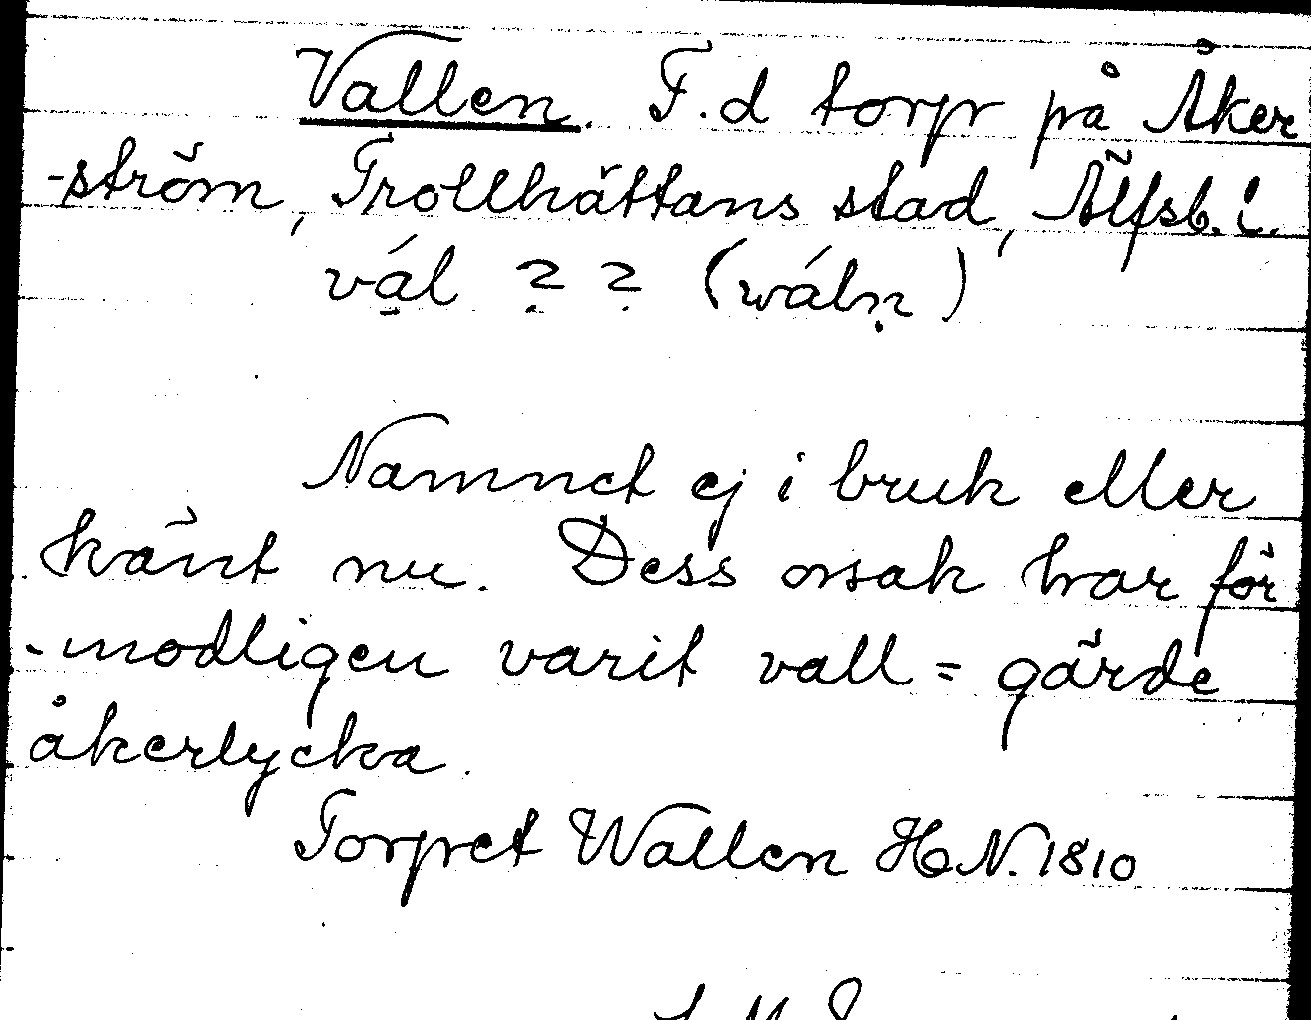 Vallen. F.d torp på Åker
-ström, Trollhättans stad, Älfsb. l.
vá̱l ? ? (wálṇ)
Namnet ej i bruk eller
känt nu. Dess orsak har för
-modligen varit vall = gärde
åkerlycka.
Torpet Wallen HN. 1810